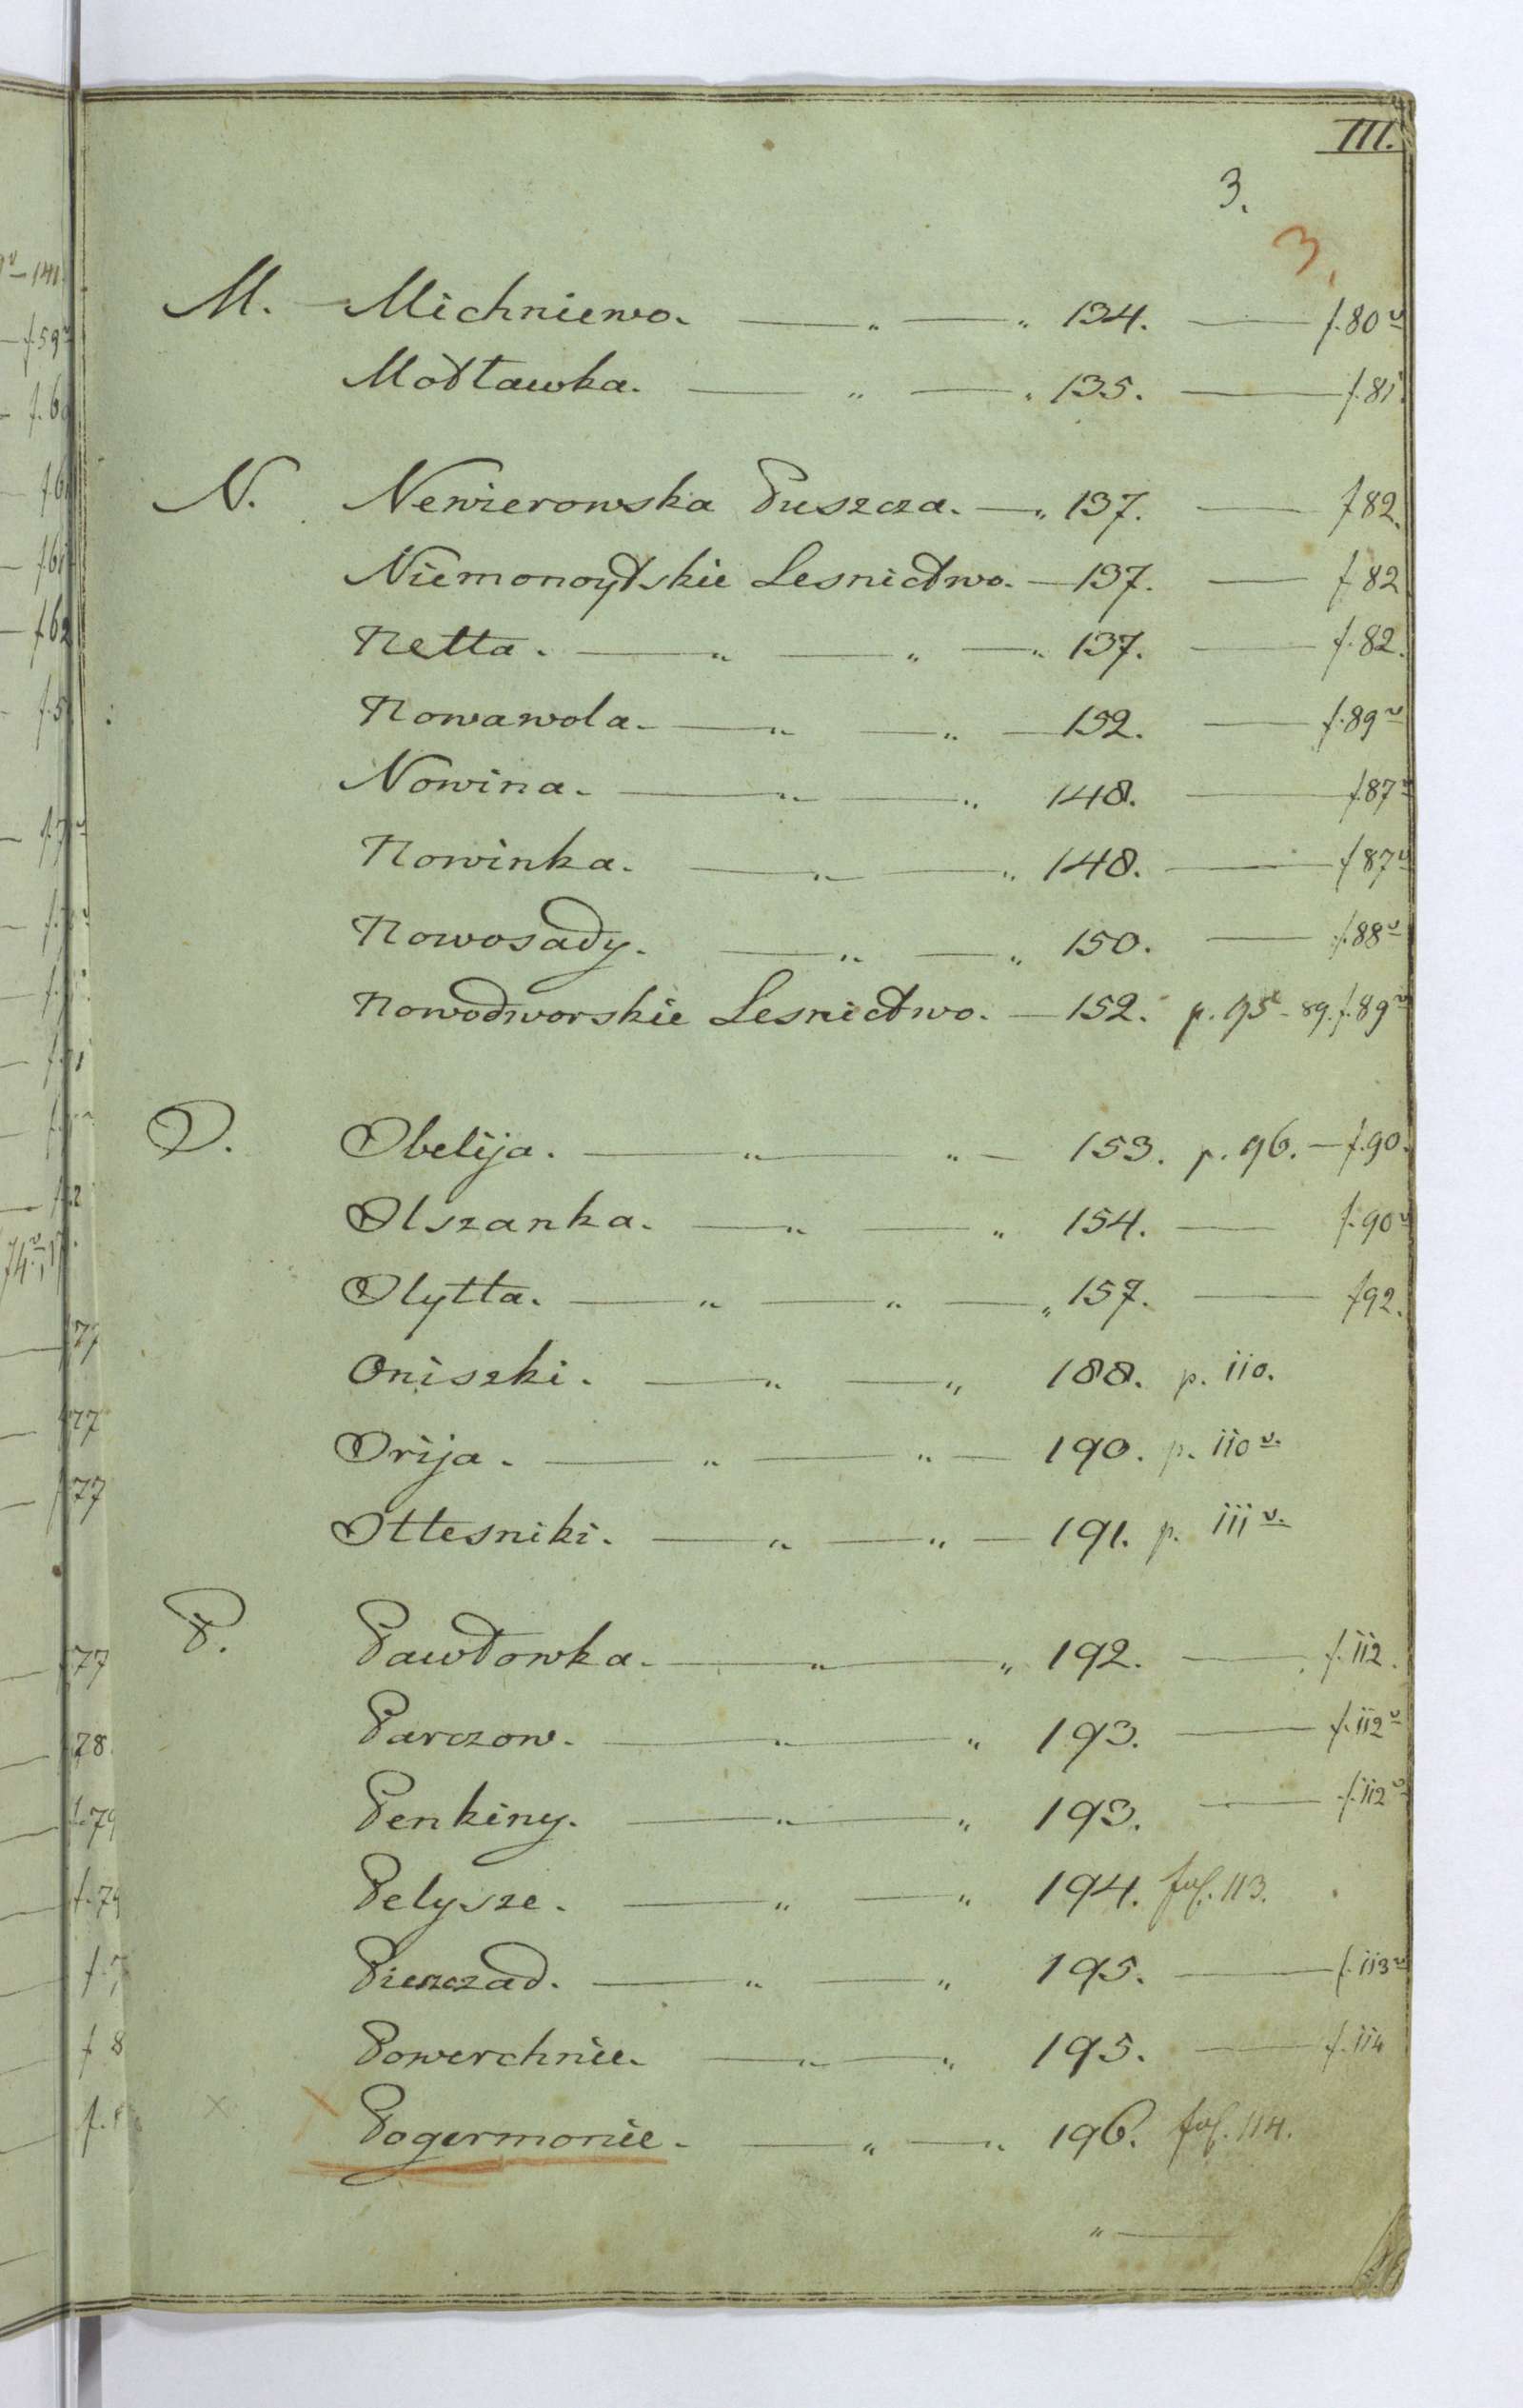 III.
3.
3.
M. Michniewo. — „ — „ 134. — f. 80 v
Modławka. — „ — „ 135. — f. 81.
N. Newierowska Puszcza. — „ 137. — f 82.
Niemonoytskie Lesnictwo. — 137. — f 82
Netta. — „ — „ — „ 137. — f. 82.
Nowawola. — „ — „ — 152. — f. 89 v
Nowina. — „ — „ 148. — f. 87 v
Nowinka. — „ — „ 148. — f 87 v
Nowosady. — „ — „ 150. — f. 88 v
Nowodworskie Lesnictwo. — 152. p. 95 - 89. f. 89 v
O. Obelija. — „ — „ — 153. p. 96. — f. 90.
Olszanka. — „ — „ 154. — f. 90 v
Olytta. — „ — „ — „ 157. — f 92.
Oniszki. — „ — „ 188. p. 110.
Orija. — „ — „ — 190. p. 110 v.
Ottesniki. — „ — „ — 191. p. 111 v.
P. Pawłowka. — „ — „ 192. — f. 112.
Parczow. — „ — „ 193. — f. 112 v
Penkiny. — „ — „ 193. — f. 112 v
Pelysze. — „ — „ 194. fol. 113.
— „ — „ 195. — f. 113 v
Powerchnie. — „ — „ 195. — f. 114
Pogermonie. — „ — „ 196. fol. 114.
„ —